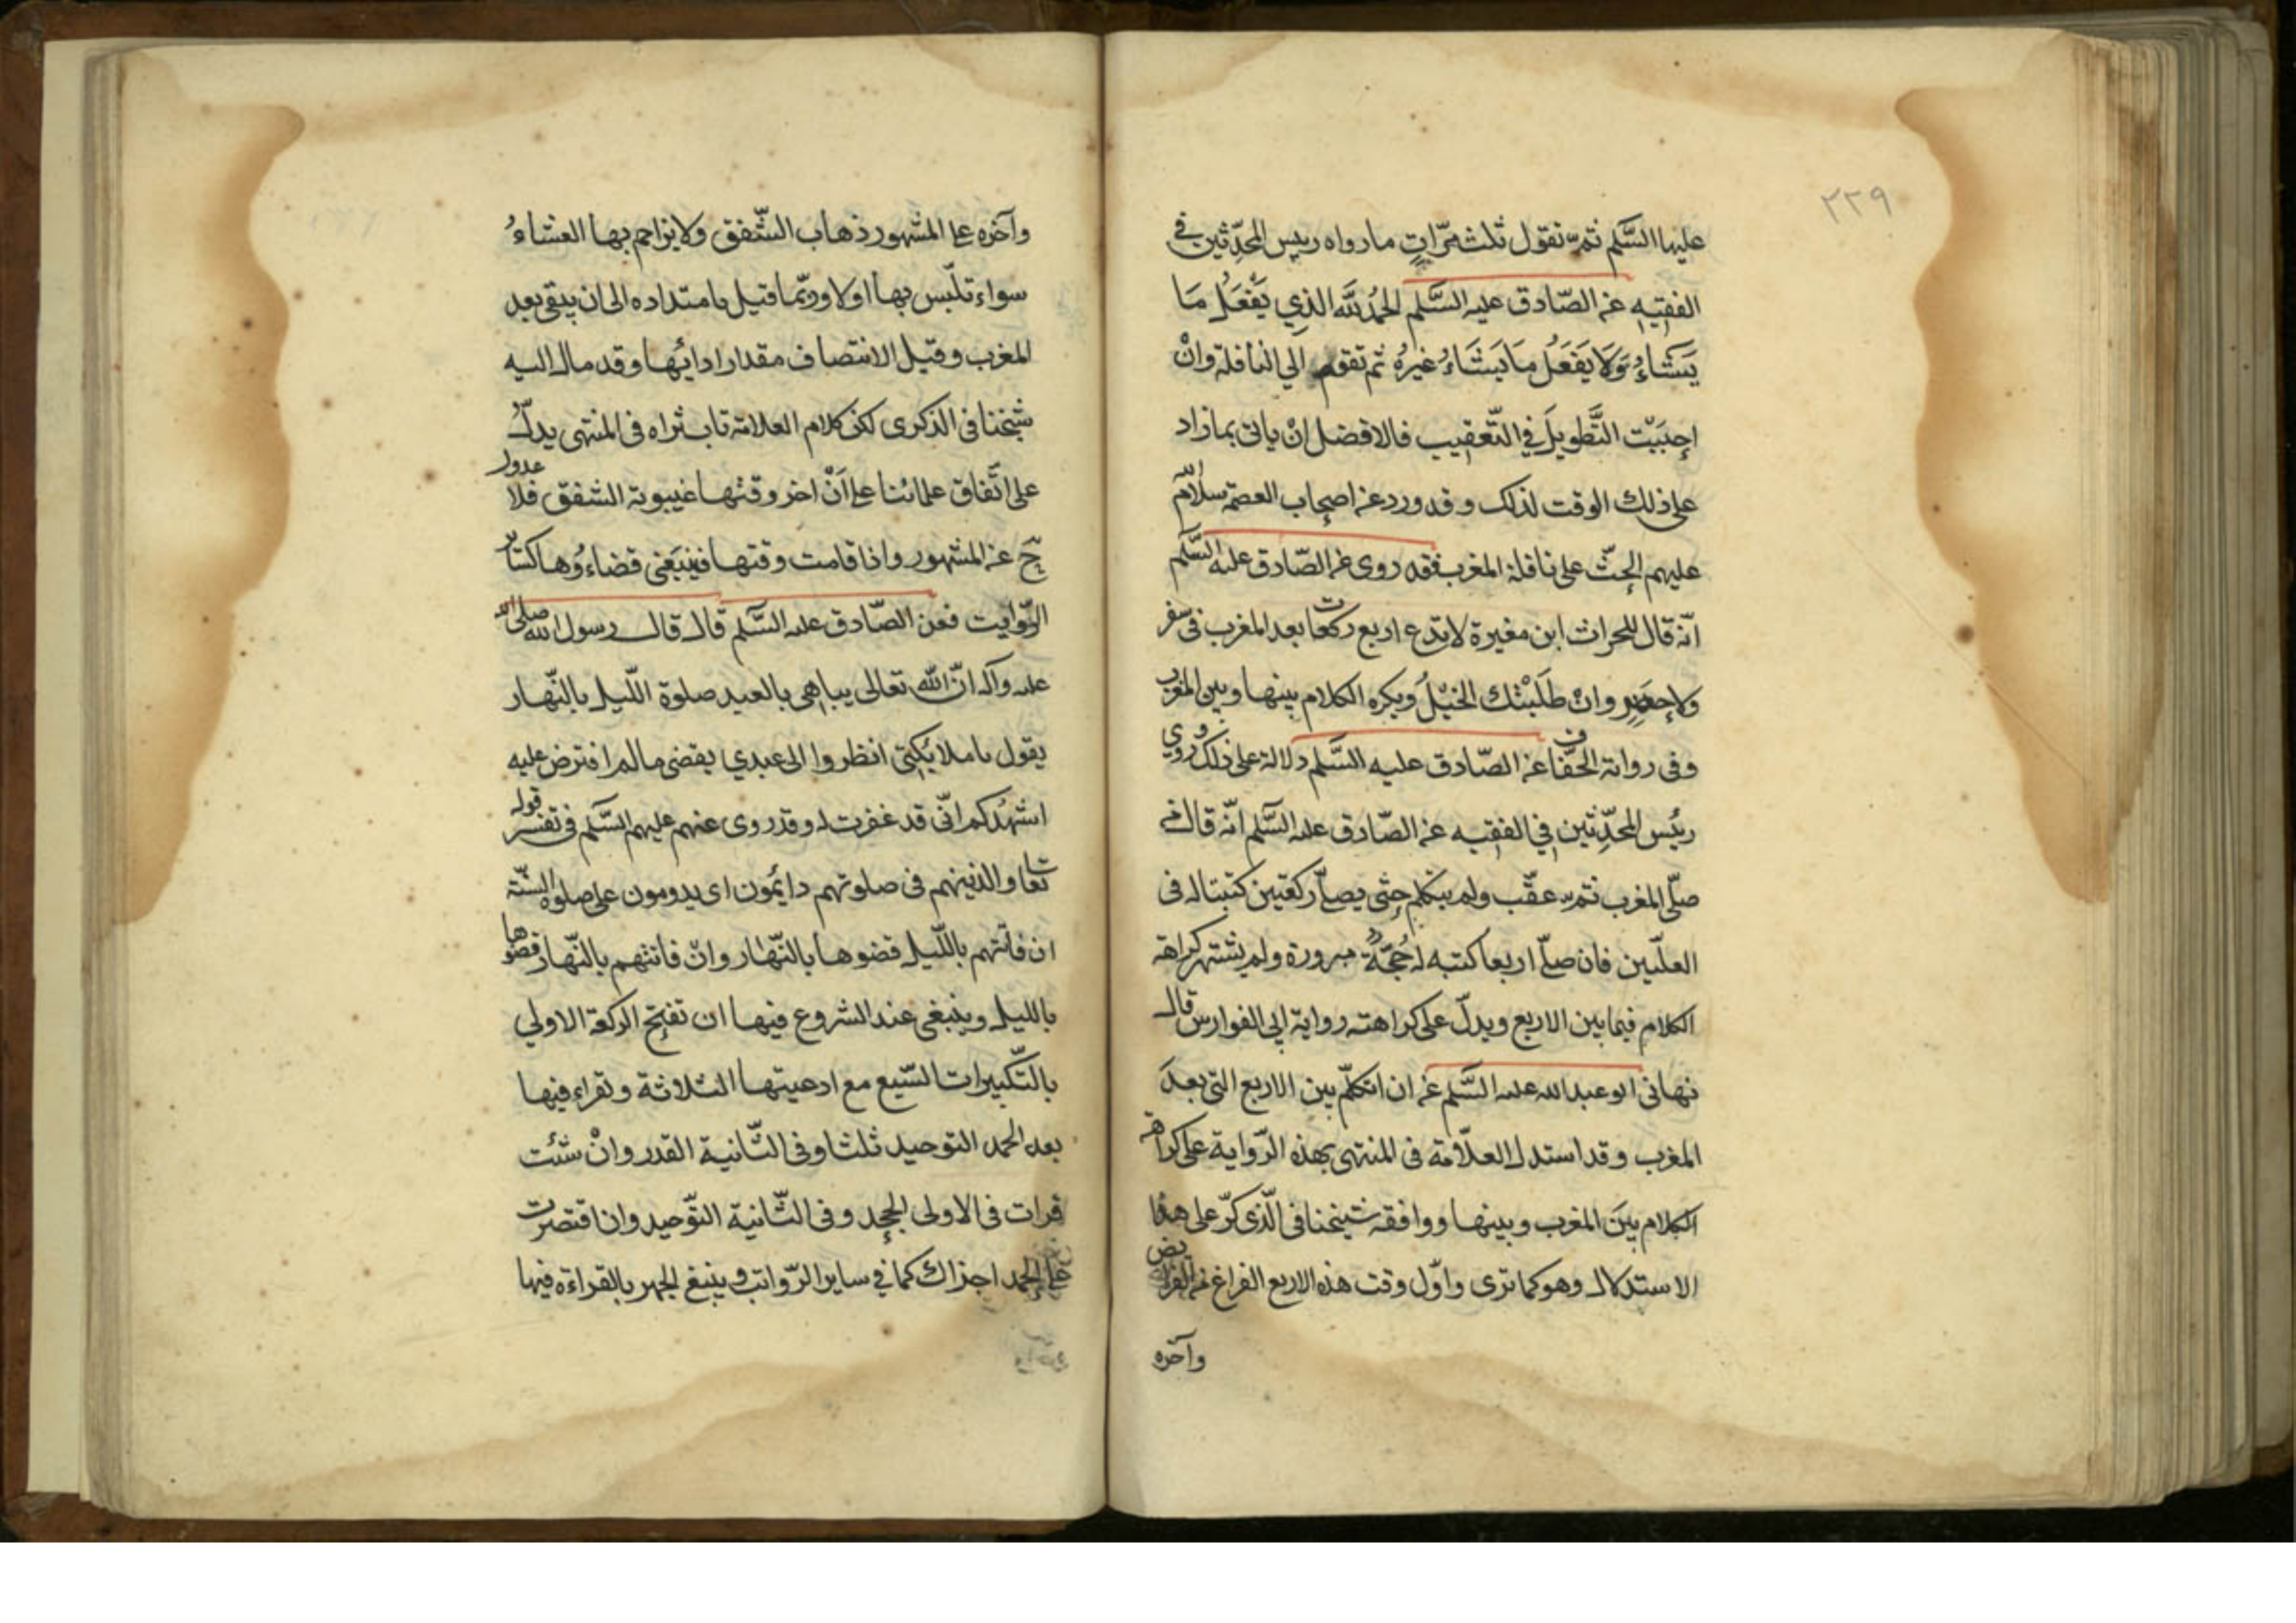 ٢٣٩
عليها السَّلم ثمّ تقول ثلث مرّاتٍ ما رواه رييس المحدّثين في
الفقيه عن الصّادق عليه السَّلم الحمدُ للّه الذي يَفْعَلُ مَا
يَشَاءُ وَلَا يَفْعَلُ مَا يَشَاءُ غيرُهُ ثم تقوم الي النافلة وانْ
احبَبْت التَّطويلَ في التّعقيب فالافضل انْ ياتى بما زاد
على ذلك الوقت لذلك وقد ورد عن اصحاب العصمة سلام الله
عليهم الحثّ على نافلة المغرب فقد روى عن الصّادق عليه السَّلم
انّه قال للحراث ابن مغيرة لا تدع اربع ركعات بعد المغرب فى سفر
ولا حضر وانْ طَلَبْتك الخيْلُ ويكره الكلام بينها وبين المغرب
وفى رواية الخفّاف عن الصّادق عليه السَّلم دلالة على ذلك وروي
ريُس المحدِّثين في الفقيه عن الصّادق عليه السَّلم انّه قال من
صلّى المغرب ثمّ عقّب ولم يتكلم حتّى يصلّ ركعتين كتبتا له فى
العلّيين فان صلّ اربعا كتبه له حُجّةً مبرورة ولم يشتهر كراهة
الكلام فيما بين الاربع ويدلّ على كراهته رواية ابي الفوارس قال
نهانى ابو عبد الله عليه السَّلم عن ان اتكلّم بين الاربع التى بعدَ
المغرب وقد استدل العلّامة فى المنتهى بهذه الرّواية على كراهة
الكلام بينَ المغرب وبينها ووافقه شيخنا فى الّذى كرّ على هذا
الاستدلال وهو كما ترى واوّل وقت هذه الاربع الفراغ من الفرايض
وآخره
وآخره على المشهور ذهاب الشّفق ولا يزاحم بها العشاءُ
سواء تلّبس بها اولا وربّما قيل بامتداده الى ان يبقى بعد
المغرب وقيل الانتصاف مقدار ادائها وقد مال اليه
شيخنا فى الذكرى لكن كلام العلامة تاب ثراه فى المنتهى يدلّ
على اتّفاق علمائنا على اَنْ اخر وقتها غيبوبة الشفق فلا عدول
حّ عن المشهور واذا قامت وقتها فينبَغى قضاءُوها كساير
الرّوايت فعن الصّادق عليه السَّلم قال قال رسول الله صلى الله
عليه وآله انّ الله تعالى يباهى بالعبد صلوة اللّيل بالنّهار
يقول يا ملايُكتى انظروا الى عبدي يقضى ما لم افترض عليه
اشهدكم انّى قد غفرت له وقد روى عنهم عليهم السَّلم فى تفسير قوله
تعا والذينهم فى صلوتهم دايُمون اى يدومون على صلوة السنّة
ان فاتتهم باللّيل قضوها بالنّهار وانْ فاتتهم بالنّهار قضوها
بالليل وينبغى عند الشروع فيها ان تفتح الركعة الاولي
بالتّكبيرات السّبع مع ادعيتها الثلاثة وتقراء فيها
بعد الحمد التوحيد ثلثا وفى الثّانية القدر وانْ شئت
قرات فى الاولى الجحد وفى الثّانية التوّحيد وان اقتصرت
على الحمد اجزاك كما في ساير الرّواتب وينبغ الجهر بالقراءة فيها